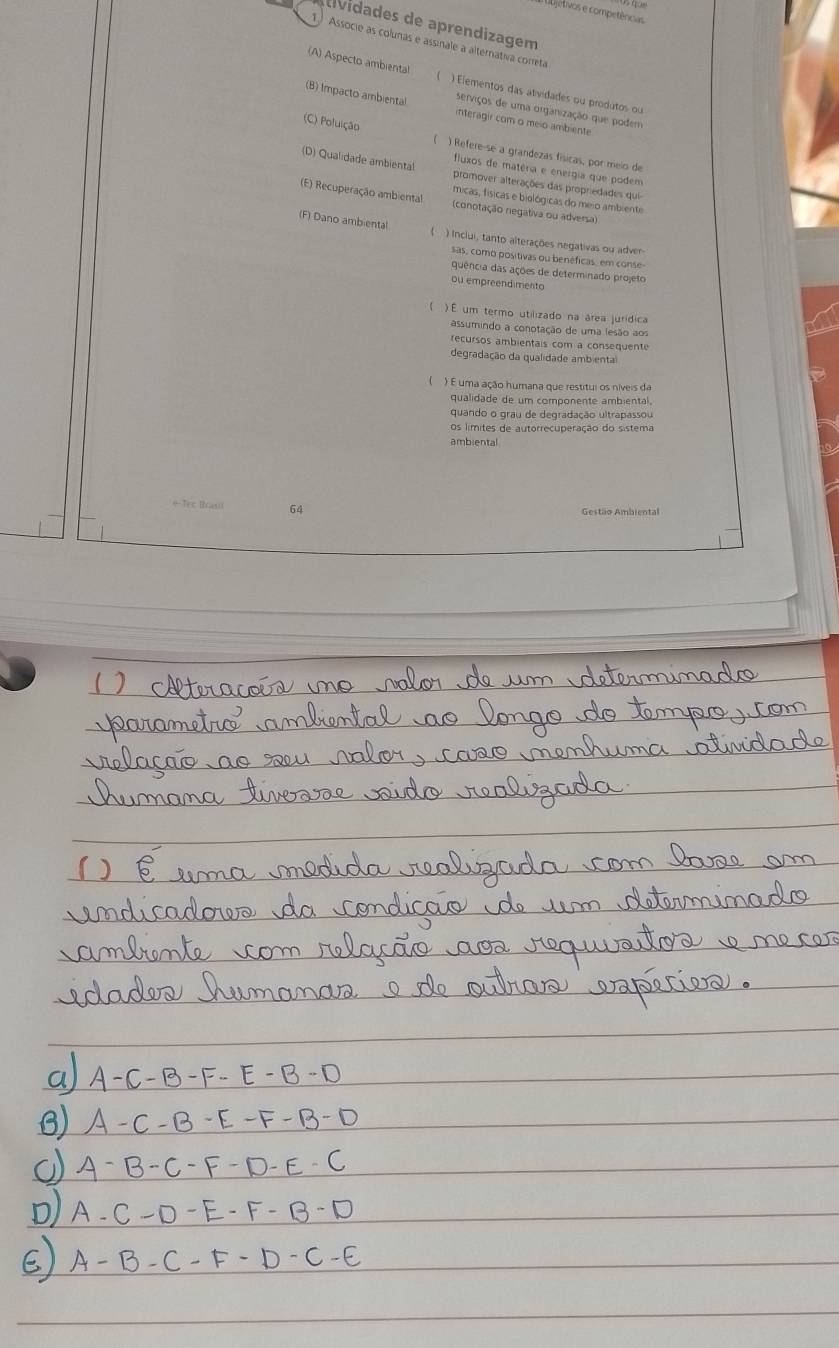 objetivos e competências
os que
tividades de aprendizagem
1. Associe as colunas e assinale a alternativa correta
(A) Aspecto ambiental
(B) Impacto ambiental
(C) Poluição
(D) Qualidade ambiental
(E) Recuperação ambiental
(F) Dano ambiental
( ) Elementos das atividades ou produtos ou
serviços de uma organização que podem
interagir com o meio ambiente
( ) Refere-se a grandezas físicas, por meio de
fluxos de matéria e energia que podem
promover alterações das propriedades quí-
micas, físicas e biológicas do meio ambiente
(conotação negativa ou adversa)
( ) Inclui, tanto alterações negativas ou adver-
sas, como positivas ou benéficas, em conse-
quência das ações de determinado projeto
ou empreendimento
( ) É um termo utilizado na área jurídica
assumindo a conotação de uma lesão aos
recursos ambientais com a consequente
degradação da qualidade ambiental
( ) É uma ação humana que restitui os níveis da
qualidade de um componente ambiental,
quando o grau de degradação ultrapassou
os limites de autorrecuperação do sistema
ambiental
e-Tec Brasil
64
Gestão Ambiental
( ) Alterações no valor de um determinado
parametro ambiental ao longo do tempo, com
relação ao seu valor, caso nenhuma atividade
humana tivesse sido realizada.
( ) É uma medida realizada com base em
indicadores da condição de um determinado
ambiente com relação aos requisitos e neces
idades humanas e de outras espécies.
a) A-C-B-F-E-B-D
B) A-C-B-E-F-B-D
C) A-B-C-F-D-E-C
D) A-C-D-E-F-B-D
E) A-B-C-F-D-C-E